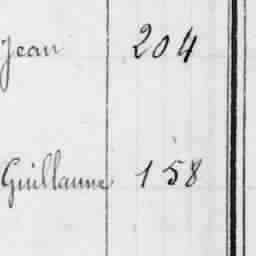 Jean 204
Guillaume 158